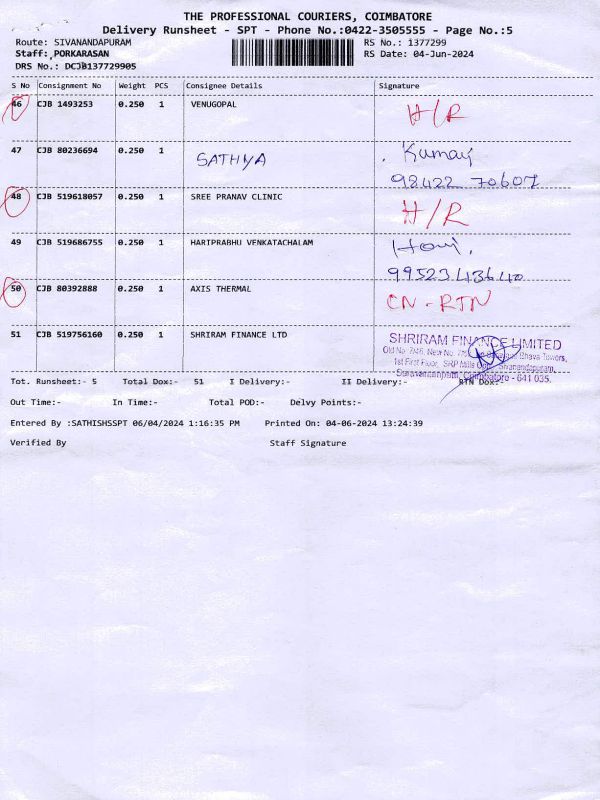 THE PROFESSIONAL COURIERS, COIMBATORE
Delivery Runsheet - SPT - Phone No.:0422-3505555 - Page No.:5
Route: SIVANANDAPURAM RS No.: 1377299
Staff: PORKARASAN RS Date: 04-Jun-2024
DRS No.: DCJB137729905
S No Consignment No Weight PCS Consignee Details Signature
46 CJB 1493253 0.250 1 VENUGOPAL H/R
47 CJB 80236694 0.250 1 SATHYA Kumar
98422 70607
48 CJB 519618057 0.250 1 SREE PRANAV CLINIC H/R
49 CJB 519686755 0.250 1 HARIPRABHU VENKATACHALAM Hari.
9952343640
50 CJB 80392888 0.250 1 AXIS THERMAL CN-RTN
51 CJB 519756160 0.250 1 SHRIRAM FINANCE LTD SHRIRAM FINANCE LIMITED
Old No. 7/46, New No. Bhava Towers,
1st First Floor, SRP Mills Sivanandapuram,
Saravanampatti, Coimbatore - 641 035.
Tot. Runsheet:- 5 Total Dox:- 51 I Delivery:- II Delivery:- RTN Dox:-
Out Time:- In Time:- Total POD:- Delvy Points:-
Entered By :SATHISHSSPT 06/04/2024 1:16:35 PM Printed On: 04-06-2024 13:24:39
Verified By Staff Signature